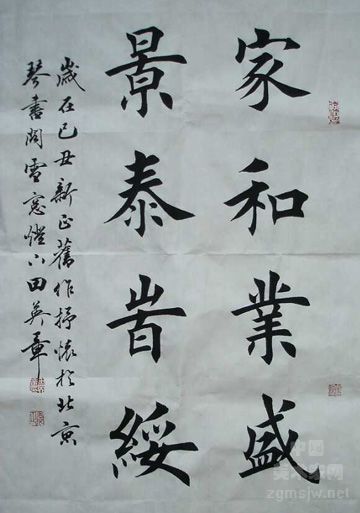 家和業盛
景泰旹綏
歲在己丑新正舊作抒懷於北京
琴書閣雪窓燈下田英章
zgmsjw.net